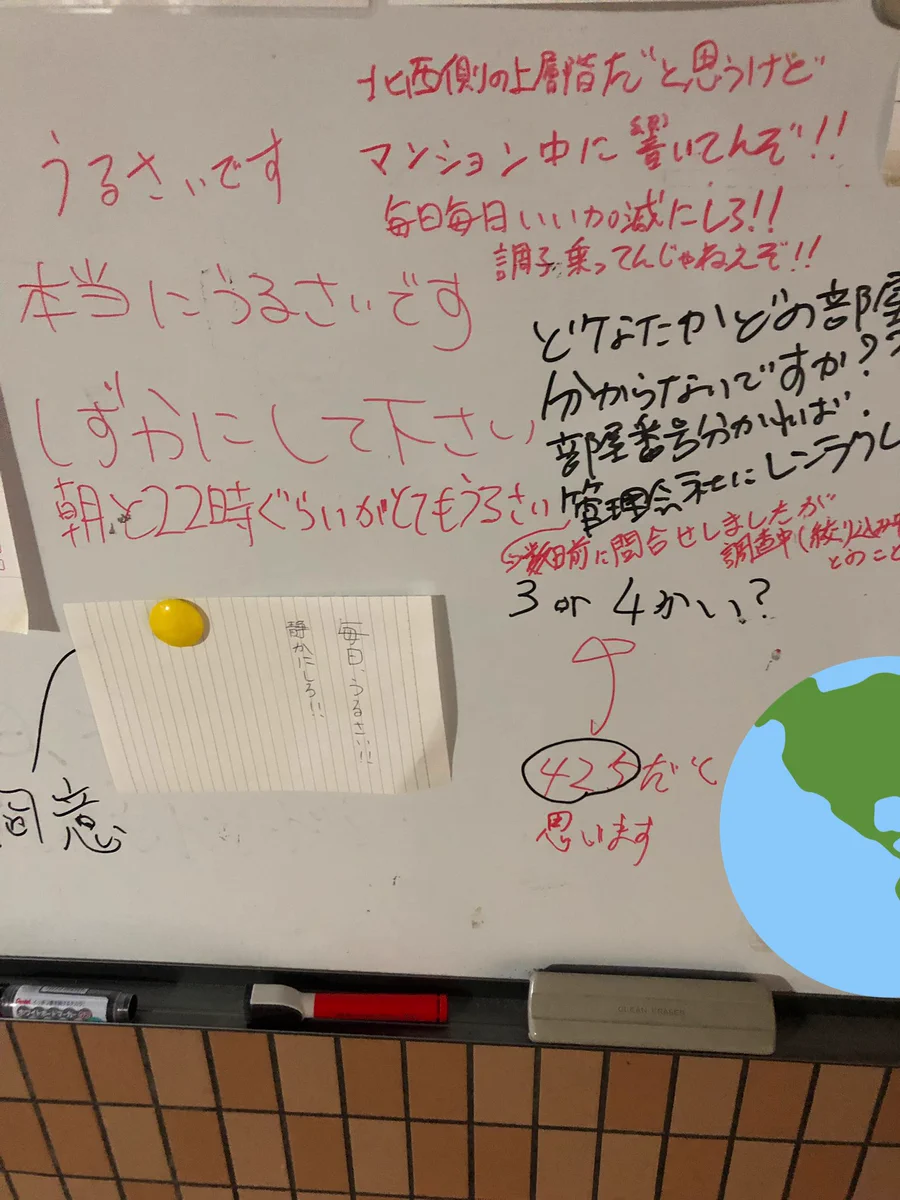 うるさいです
本当にうるさいです
しずかにして下さい
朝と22時ぐらいがとてもうるさい
北西側の上層階だと思うけど
マンション中に響いてんぞ!!
毎日毎日いいか減にしろ!!
調子乗ってんじゃねえぞ!!
どなたかどの部屋
分からないですか??
部屋番号分かれば、
管理会社にレンラクし
→数日前に問合せしましたが
調査中(絞り込み中
とのこと
3 or 4かい?
425だと
思います
毎日、うるさい!!
静かにしろ!!
同意
Pentel
ホワイトボードマーカー
CLEAN ERASER